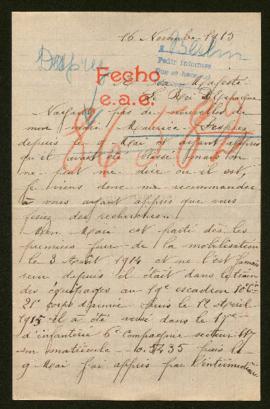 16 Novembre 1915
Despres
Berlin
Pedir informes
Fecho
e.a.e.
A Sa Majesté
Le Roi d'Espagne
N'ayant pas de nouvelles de
mon Mari Maurice Despres
depuis le 9 Mai et ayant appris
qu'il avait été blessé mais on
ne peut me dire où il est,
Je viens donc me recommander
à vous ayant appris que vous
faisiez des recherches.
Mon Mari est parti dès les
premiers jours de la mobilisation
le 3 Août 1914 et ne l'est jamais
depuis il était dans le train
des équipages au 19e escadron
21e corps d'armée puis le 12 Avril
1915 il a été versé dans le 17e
d'infanterie 6e Compagnie secteur 117
son matricule puis le
9 Mai j'ai appris par l'intermédiaire